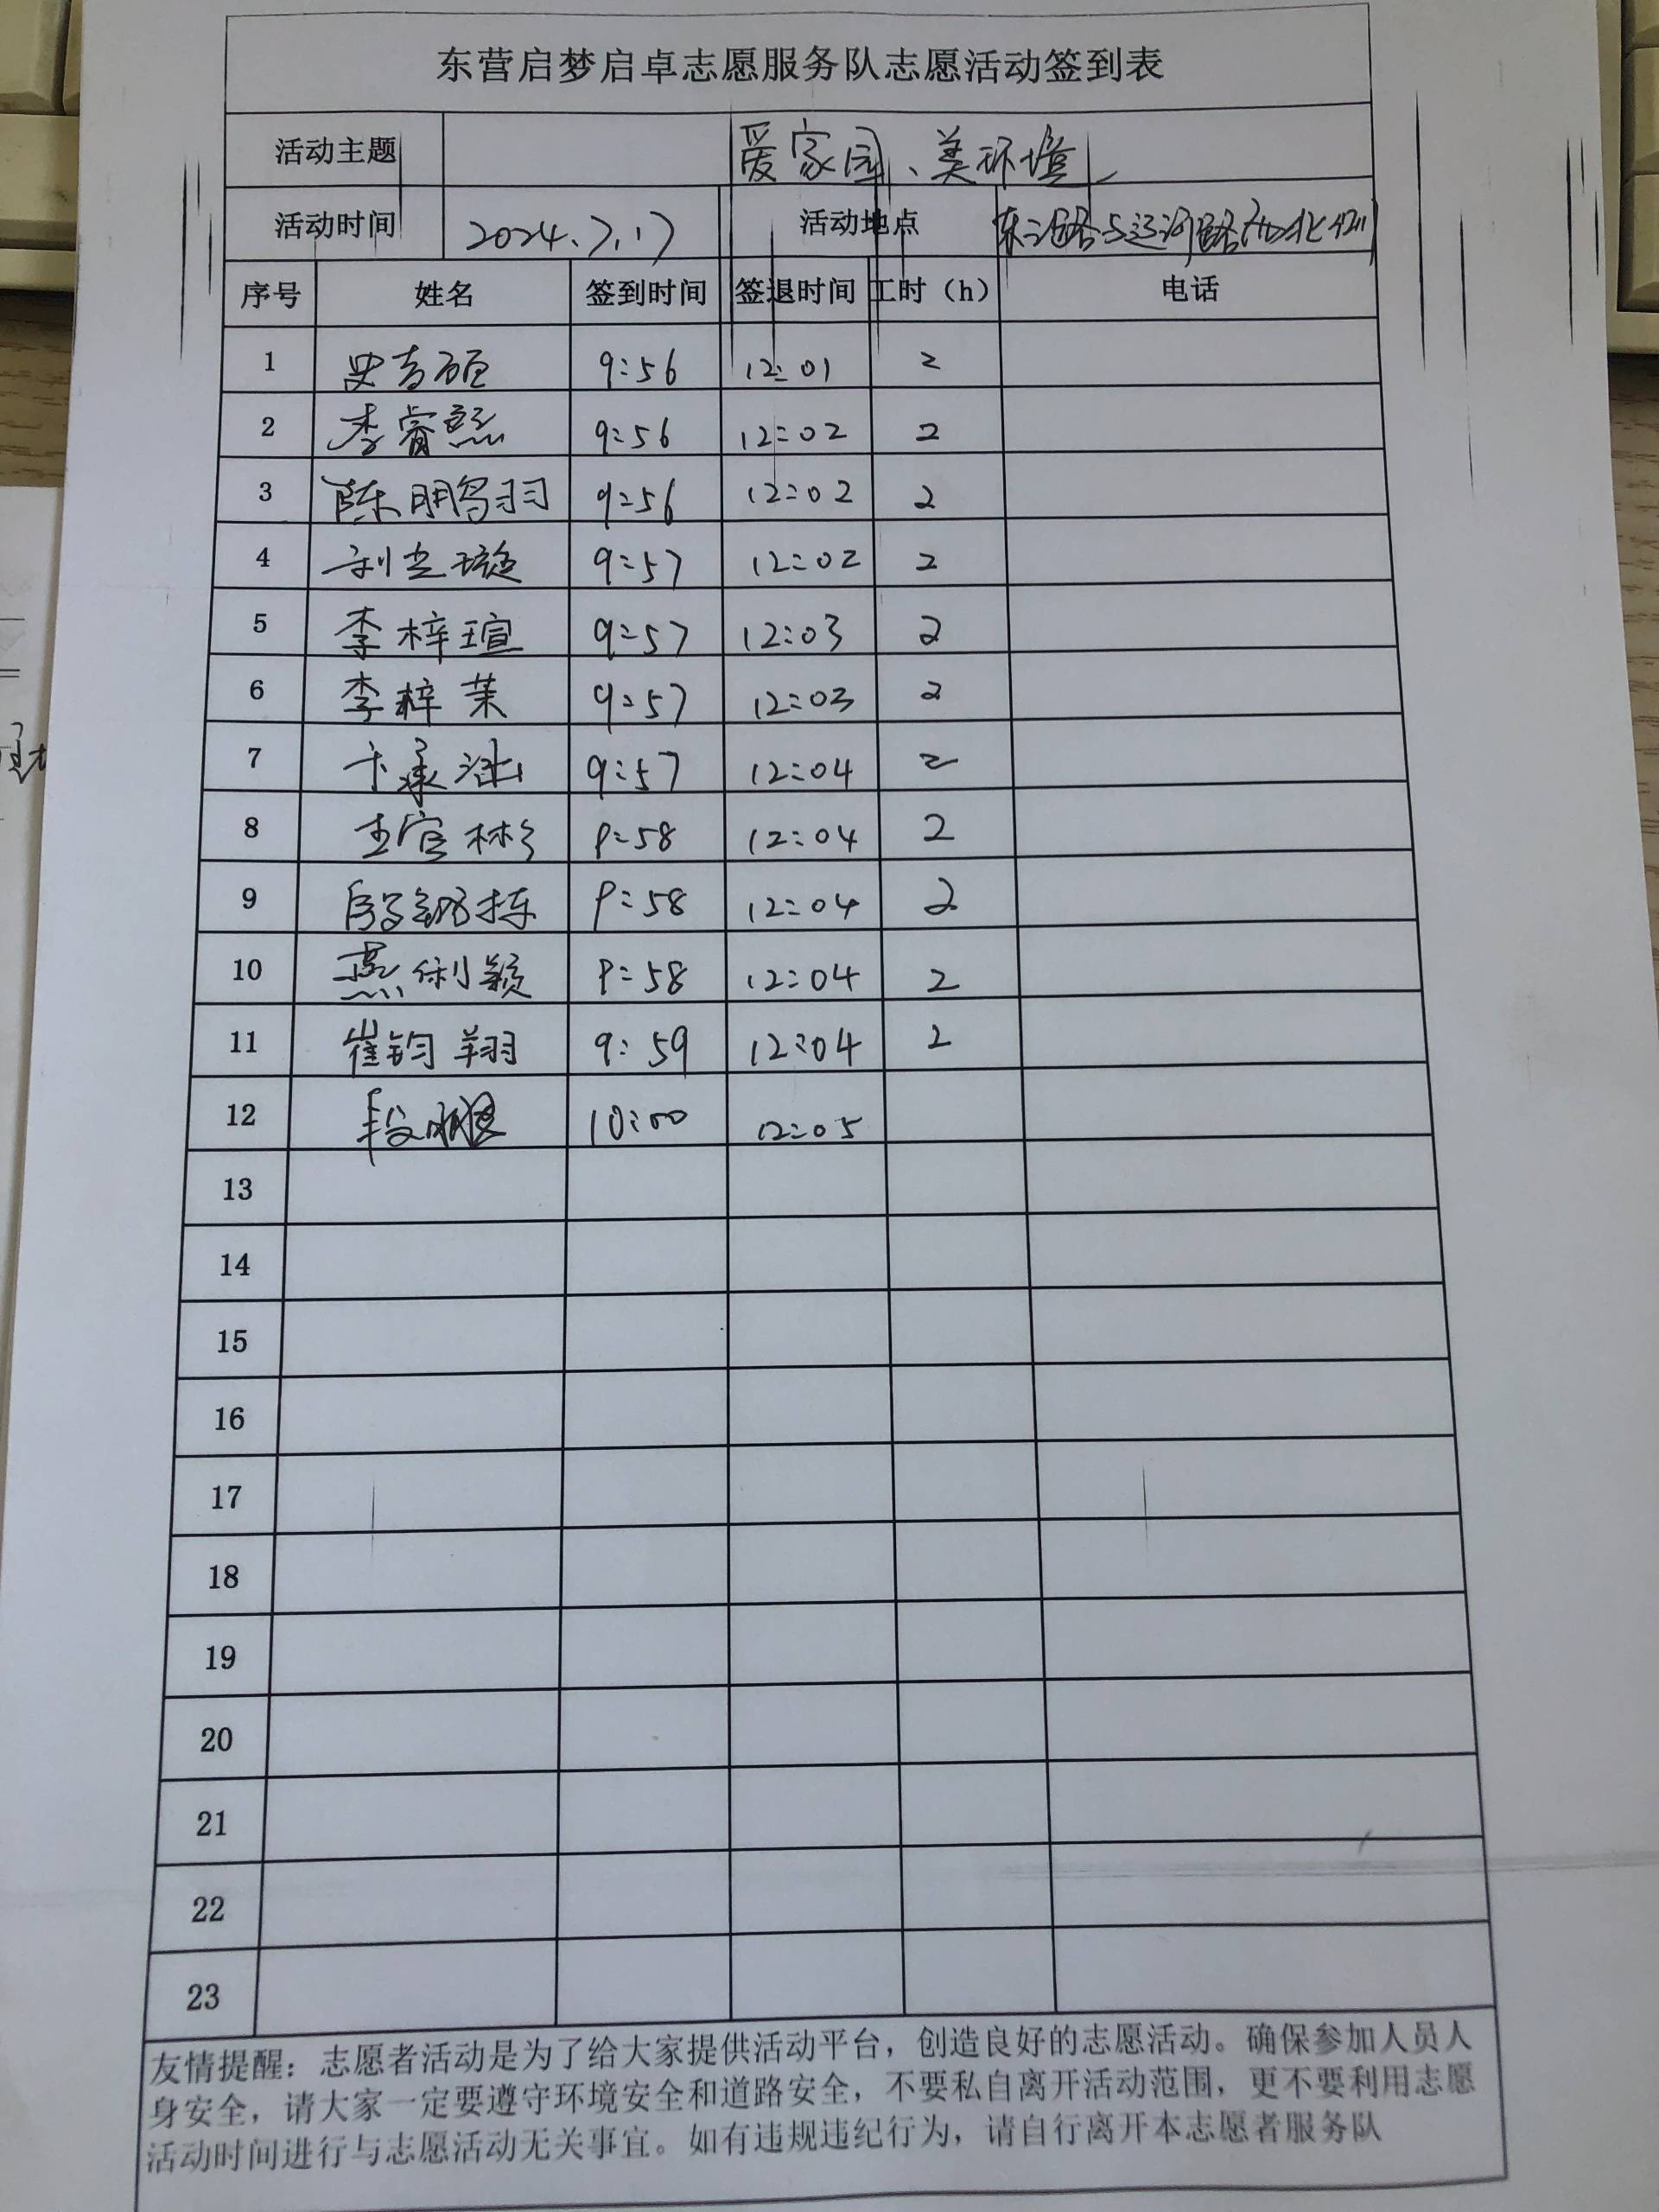 东营启梦启卓志愿服务队志愿活动签到表
活动主题 爱家园、美环境
活动时间 2024.7.17 活动地点 东二路与运河路
序号 姓名 签到时间 签退时间 工时（h） 电话
1 史吉硕 9:56 12:01 2
2 李睿熙 9:56 12:02 2
3 陈鹏羽 9:56 12:02 2
4 9:57 12:02 2
5 李梓瑄 9:57 12:03 2
6 李梓茉 9:57 12:03 2
7 9:57 12:04 2
8 王官彬 9:58 12:04 2
9 9:58 12:04 2
10 燕俐颖 9:58 12:04 2
11 崔钧翔 9:59 12:04 2
12 10:00 12:05
13
14
15
16
17
18
19
20
21
22
23
友情提醒：志愿者活动是为了给大家提供活动平台，创造良好的志愿活动。确保参加人员人
身安全，请大家一定要遵守环境安全和道路安全，不要私自离开活动范围，更不要利用志愿
活动时间进行与志愿活动无关事宜。如有违规违纪行为，请自行离开本志愿者服务队